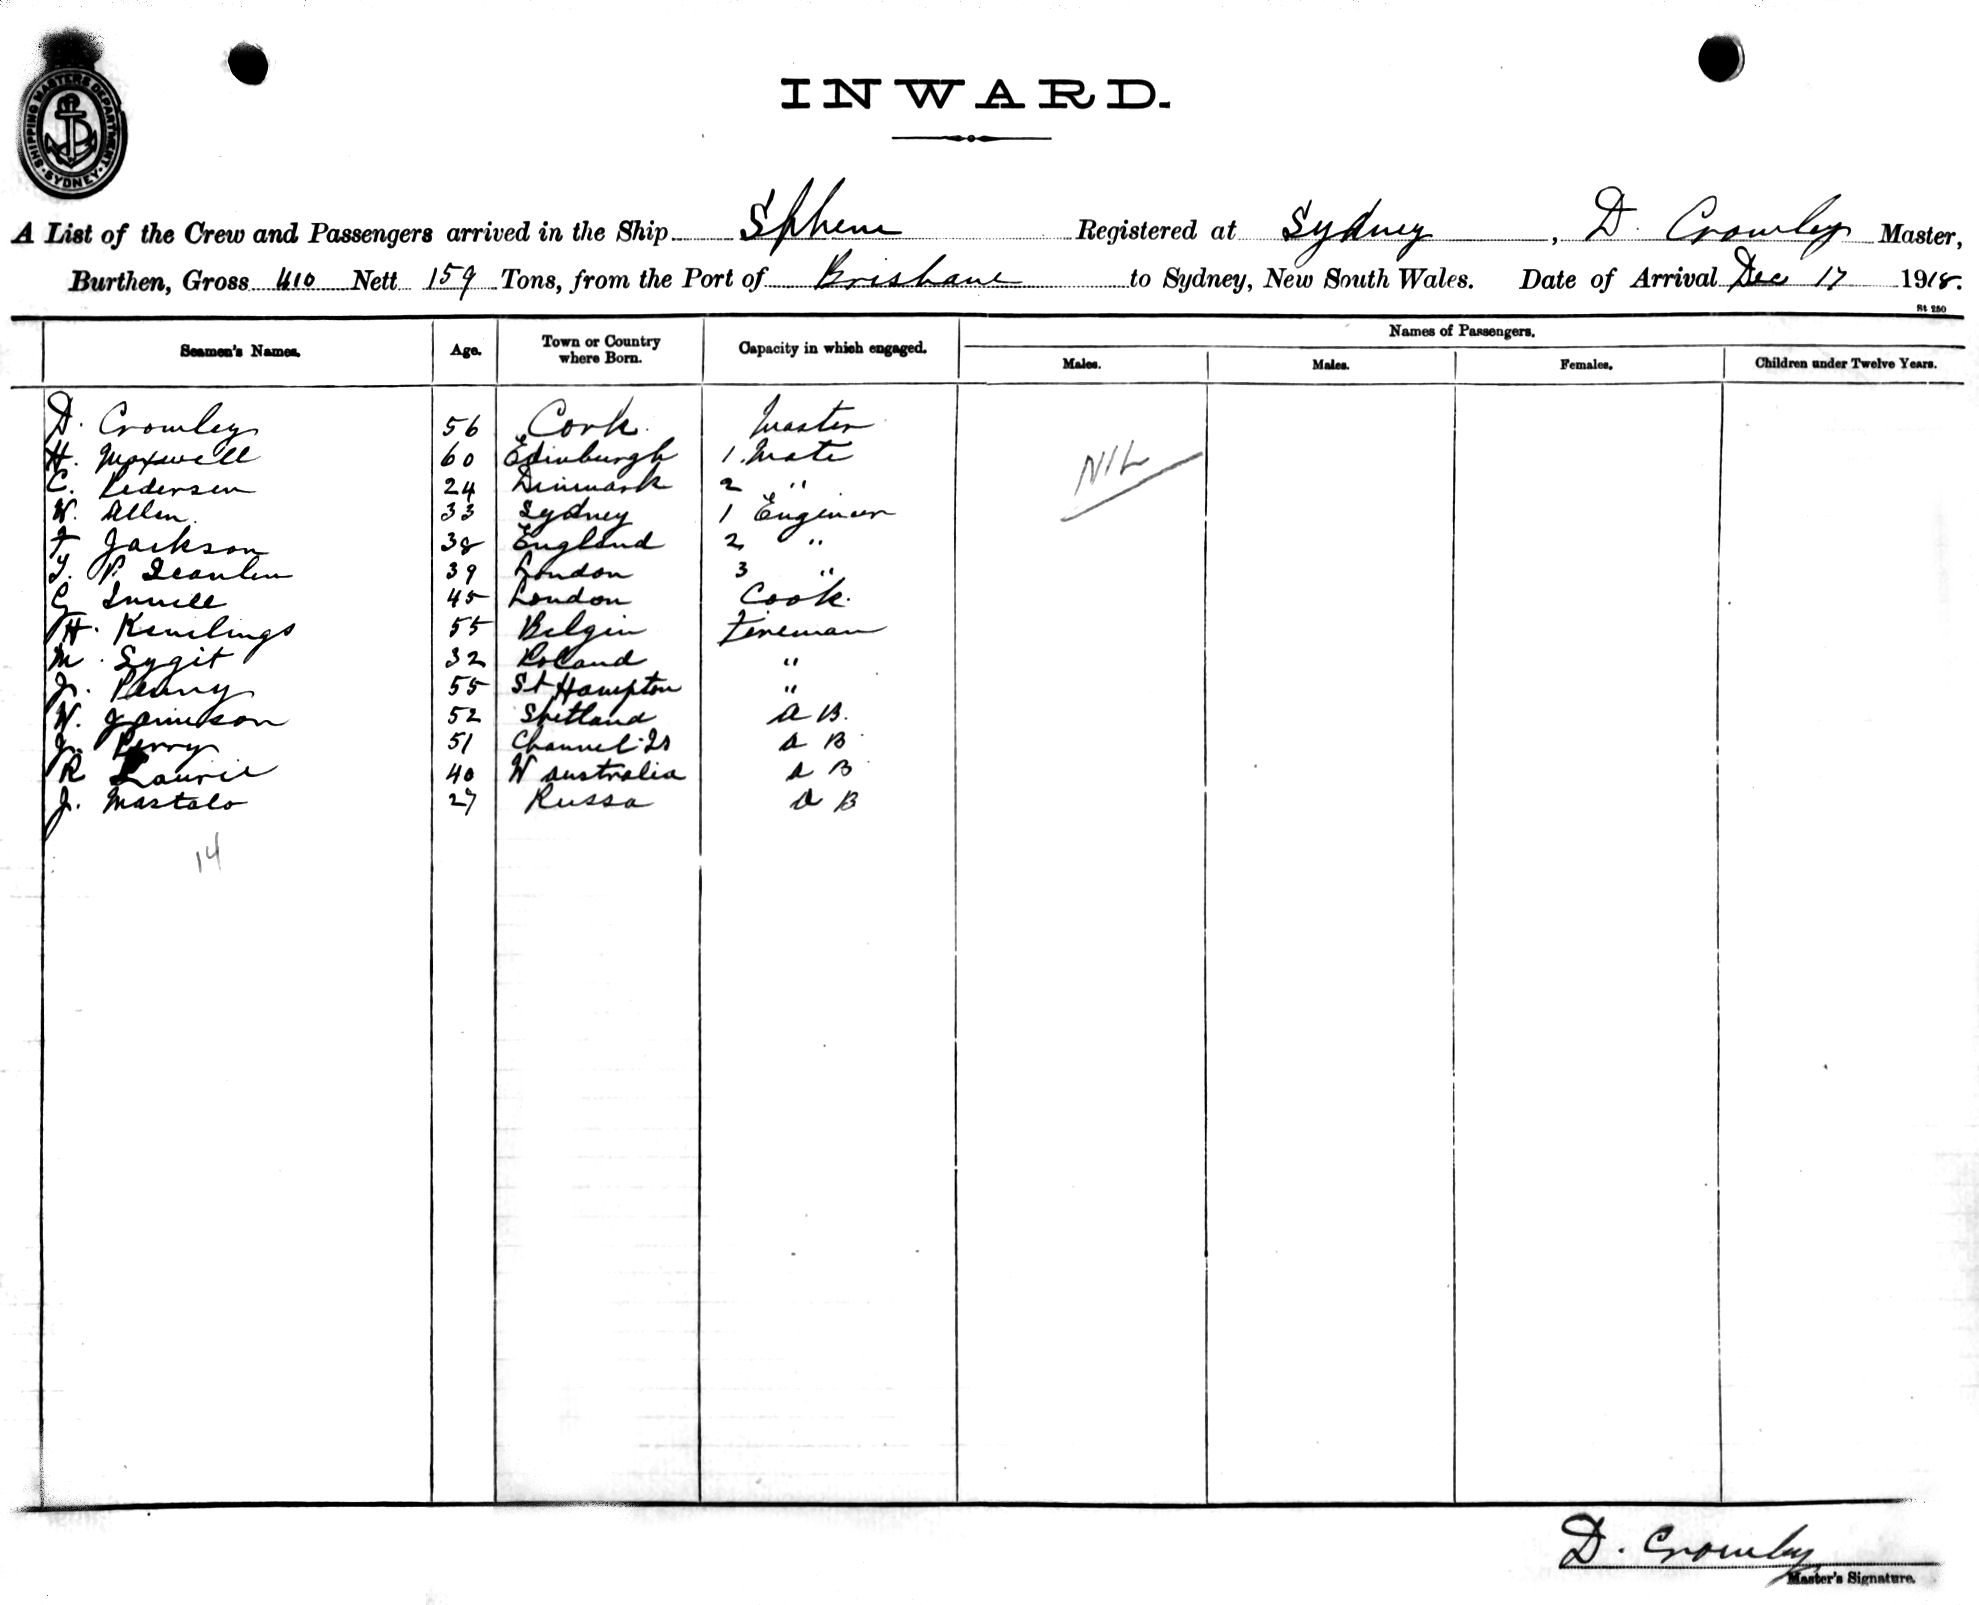 SHIPPING MASTERS DEPARTMENT
SYDNEY
INWARD.
A List of the Crew and Passengers arrived in the Ship Sphene Registered at Sydney, D. Crowley Master,
Burthen, Gross 410 Nett 159 Tons, from the Port of Brisbane to Sydney, New South Wales. Date of Arrival Dec 17 1918.
St 250
Seamen's Names. Age. Town or Country where Born. Capacity in which engaged. Names of Passengers.
Males. Males. Females. Children under Twelve Years.
D. Crowley 56 Cork. Master
H. Maxwell 60 Edinburgh 1. Mate NIL
C. Pedersen 24 Denmark 2 "
W. Allen. 33 Sydney 1 Engineer
F Jackson 38 England 2 "
T. P. Scanlen 39 London 3 "
G 45 London Cook.
H. 55 Belgin Fireman
M. Sygit 32 Poland "
J. Penny 55 St Hampton "
W. Jamieson 52 Shetland A B.
J. Perry 51 Channel Is A B
R Laurie 40 W Australia A B
J. Mastalo 27 Russa A B
14
D. Crowley
Master's Signature.